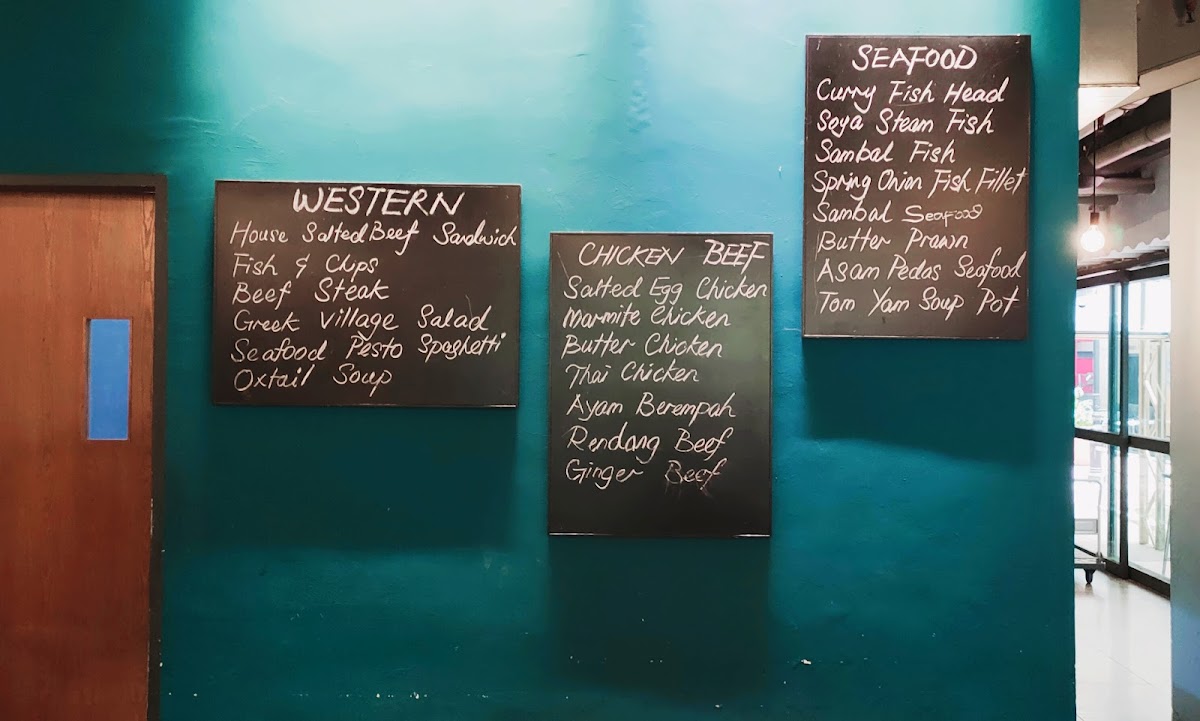 WESTERN
House Salted Beef Sandwich
Fish & Chips
Beef Steak
Greek Village Salad
Seafood Pesto Spaghetti
Oxtail Soup
CHICKEN BEEF
Salted Egg Chicken
Marmite Chicken
Butter Chicken
Thai Chicken
Ayam Berempah
Rendang Beef
Ginger Beef
SEAFOOD
Curry Fish Head
Soya Steam Fish
Sambal Fish
Spring Onion Fish Fillet
Sambal Seafood
Butter Prawn
Asam Pedas Seafood
Tom Yam Soup Pot